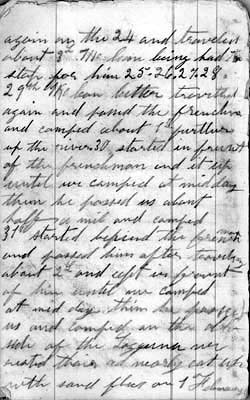 again on the 24 and traveled
about 3 mi. McKean being bad to
stop for him 25-26-27-28.
29th McKean better traveled
again and passed the frenchmn
and camped about 1 m further
up the river 30 started in front
of the frenchman and it up
until we camped at midday
then he possed us about
half a mile and camped
31 started behind the french man
and passed him after traveling
about 2 m and cept in front
of him until we camped
at mid day then he passed
us and camped on the other
side of the river
and nearly eat up
with sand flies on 1 February